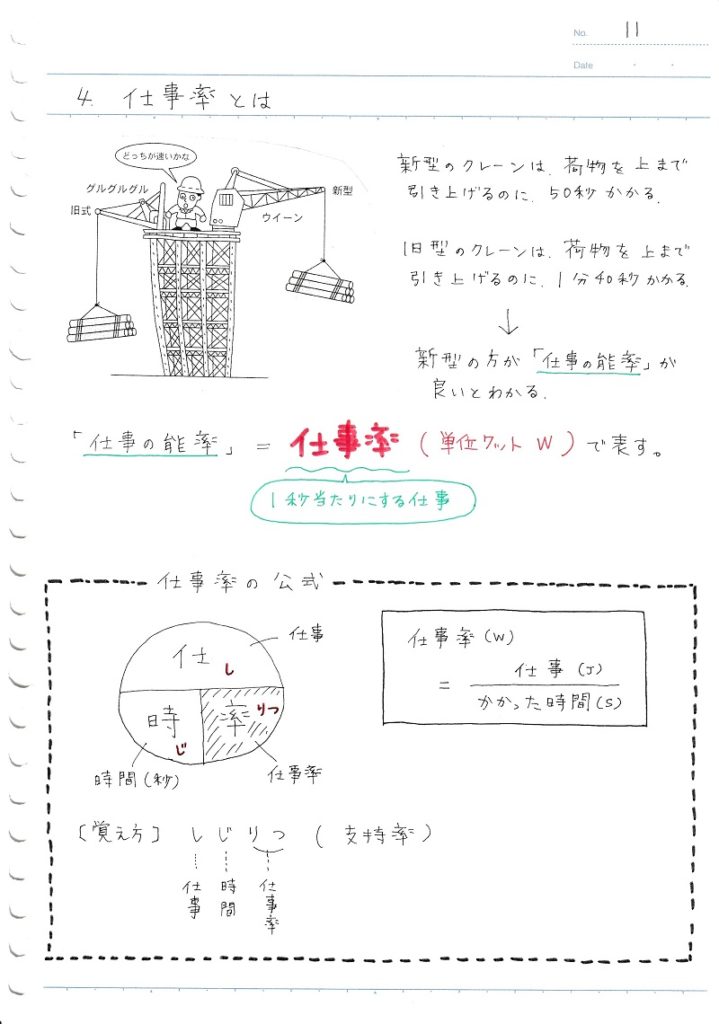 No. 11
Date
4. 仕事率とは
どっちが速いかな
グルグルグル
旧式
新型
ウイーン
新型のクレーンは、荷物を上まで
引き上げるのに、50秒かかる.
旧型のクレーンは、荷物を上まで
引き上げるのに、1分40秒かかる.
↓
新型の方が「仕事の能率」が
良いとわかる.
「仕事の能率」=仕事率(単位ワット W)で表す。
1秒当たりにする仕事
仕事率の公式
仕事
仕
し
時
じ
率
りつ
時間(秒)
仕事率
仕事率(W)
= 仕事(J)
かかった時間(S)
[覚え方] しじりつ (支持率)
仕事
時間
仕事率